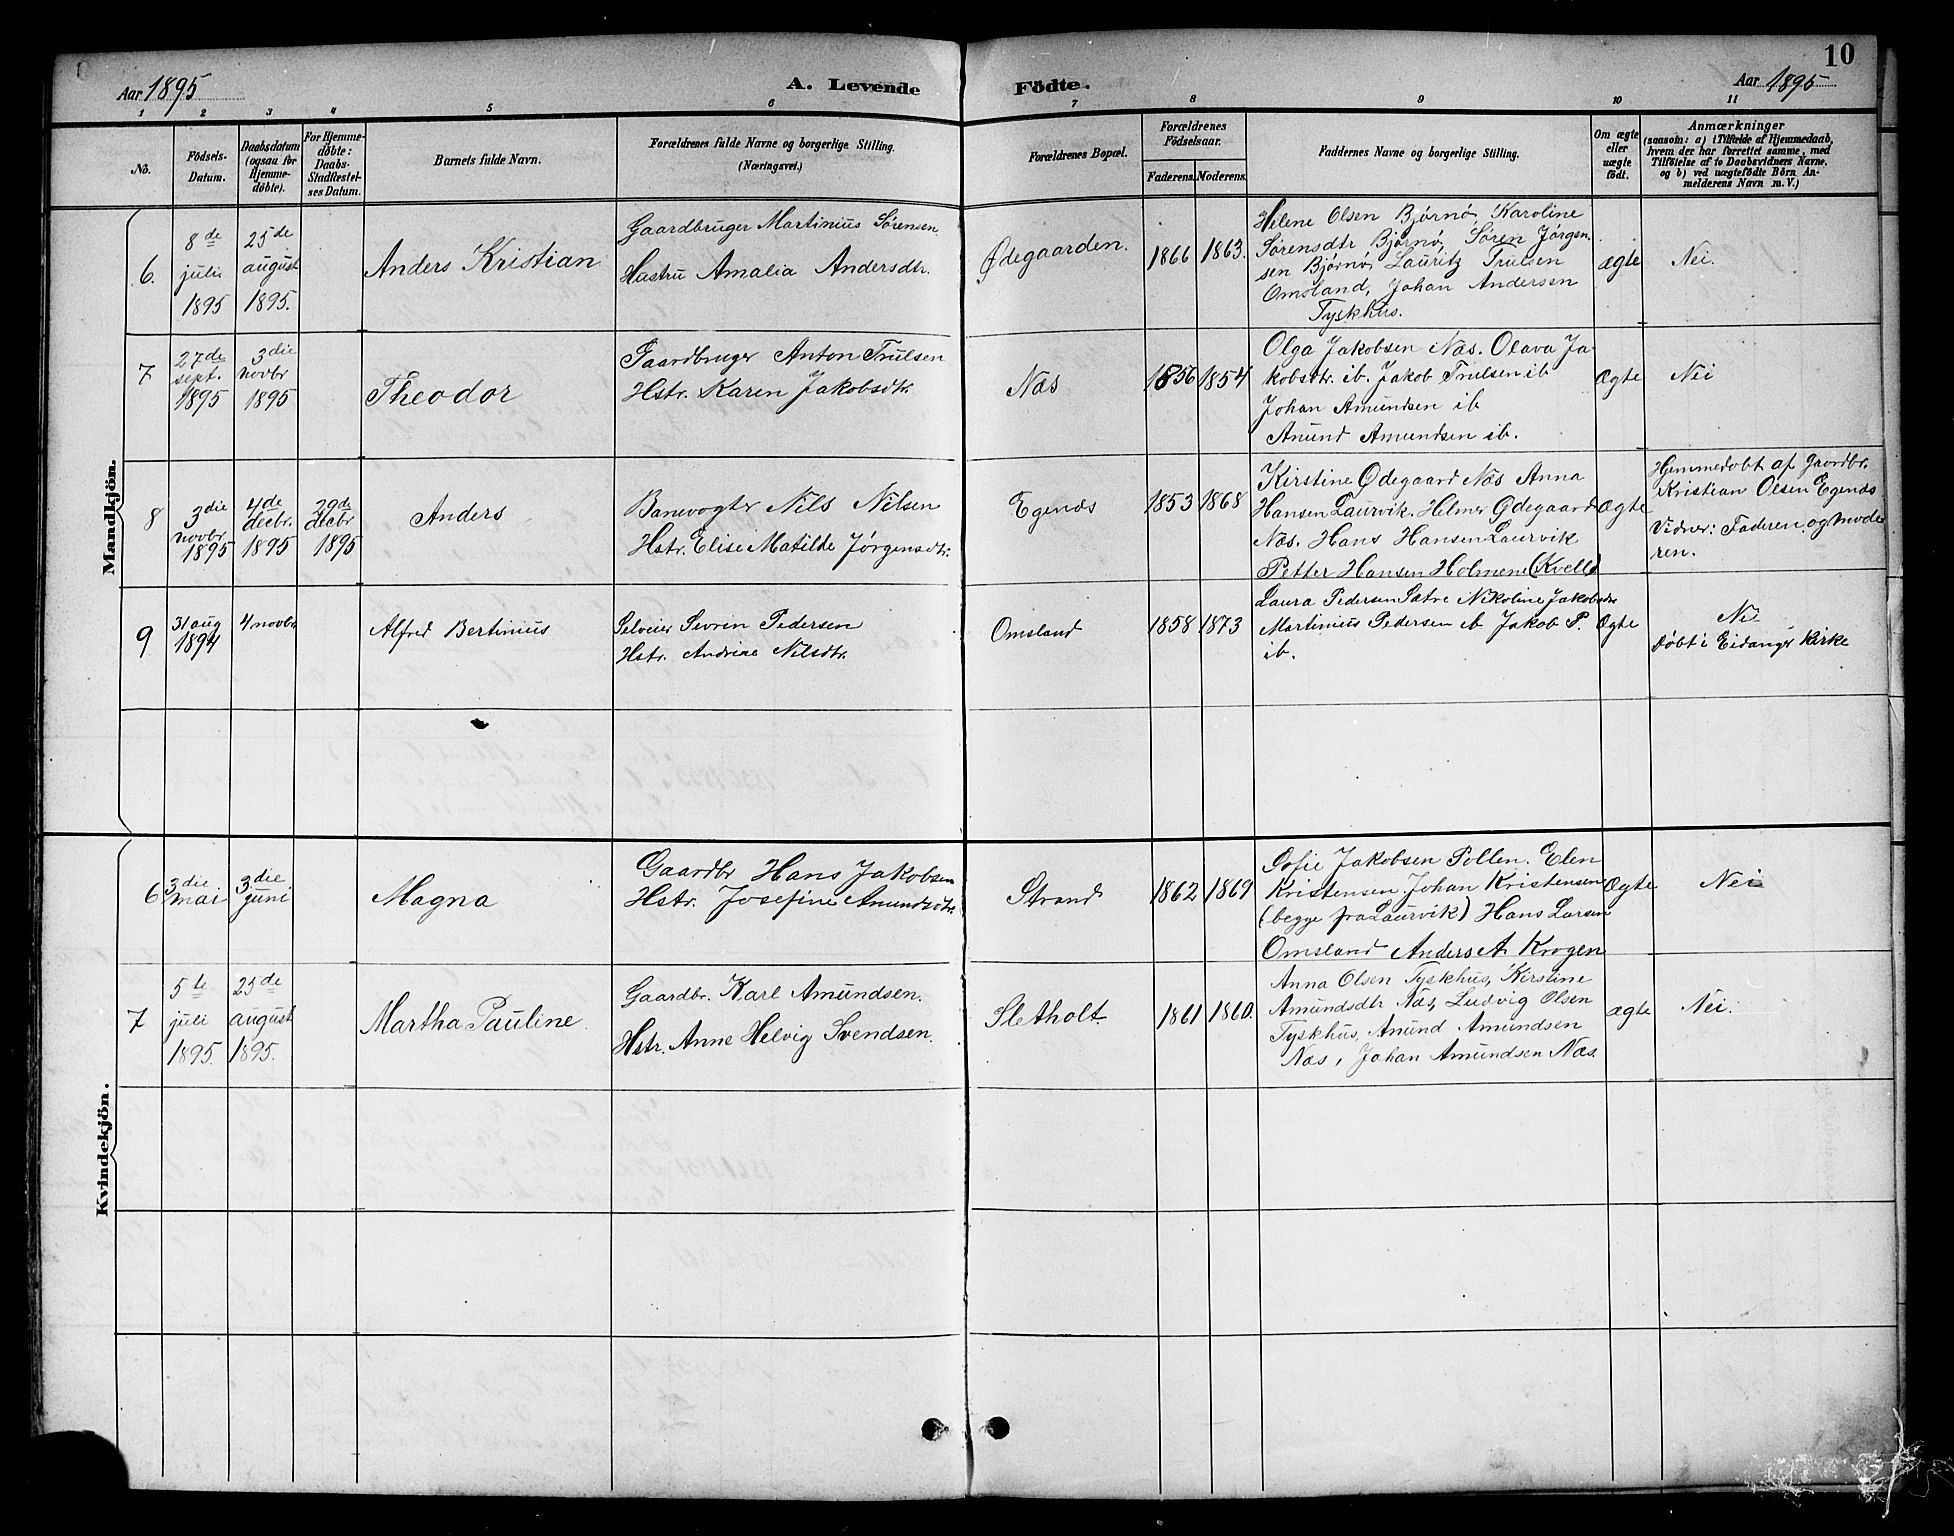 10
Aar 1895
A. Levende Födte.
Aar 1895
1 2 3 4 5 6 7 8 9 10 11
No.
Födsels-
Datum.
Daabsdatum
(ogsaa for
Hjemme-
döbte).
For Hjemme-
döbte:
Daabs-
Stadfæstel-
ses Datum.
Barnets fulde Navn.
Forældrenes fulde Navne og borgerlige Stilling.
(Næringsvei.)
Forældrenes Bopæl.
Forældrenes
Födselsaar.
Faderens. Moderens.
Faddernes Navne og borgerlige Stilling.
Om ægte
eller
uægte
födt.
Anmærkninger
(saasom: a) i Tilfælde af Hjemmedaab,
hvem der har forrettet samme, med
Tilföielse af to Daabsvidners Navne,
og b) ved uægtefödte Börn An-
melderens Navn m. V.)
Mandkjön.
6.
8de
juli
1895
25de
august
1895.
Anders Kristian
Gaardbruger Martinius Sørensen
Hustru Amalia Andersdtr.
Ødegaarden.
1866 1863.
Helene Olsen Bjørnø, Karoline
Sørensdtr Bjørnø, Søren Jørgen-
sen Bjørnø, Lauritz Trulsen
Omsland, Johan Andersen
Tyskhus.
ægte
Nei.
7
27de
sept.
1895
3die
novbr
1895
Theodor
Gaardbruger Anton Trulsen
Hstr. Karen Jakobsdtr.
Næs
1856 1854
Olga Jakobsen Næs. Olava Ja-
kobsdtr. ib. Jakob Trulsen ib
Johan Amundsen ib
Anund Amundsen ib.
Ægte
Nei
8
3die
novbr
1895
4de
decbr.
1895
29de
decbr
1895
Anders
Banevogter Nils Nilsen
Hstr. Elise Matilde Jørgensdtr.
Egenæs
1853 1868
Kirstine Ødegaard Næs Anna
Hansen Laurvik. Helmer Ødegaard
Næs. Hans Hansen Laurvik
Petter Hansen Holmene (Kvelle)
Ægte
Hjemmedøbt af Gaardbr.
Kristian Olsen Egenæs
Vidner: Faderen og Mode
ren.
9
31 aug
1894
4 novbr
Alfred Bertinius
Selveier Sevrin Pedersen
Hstr. Andrine Nilsdtr.
Omsland
1858 1873
Laura Pedersen Sætre Nikoline Jakobsdtr
Martinius Pedersen ib Jakob P.
ib.
Ægte
Nei
Døbt i Eidanger Kirke
Kvindekjön.
6
3die
mai
3die
juni
Magna
Gaardbr Hans Jakobsen
Hstr. Josefine Amundsdtr.
Strand
1862 1869
Sofie Jakobsen Pollen. Elen
Kristensen, Johan Kristensen
(begge fra Laurvik) Hans Larsen
Omsland Anders A. Krogen
Ægte
Nei
7
5te
juli
1895.
25de
august
1895.
Martha Pauline
Gaardbr. Karl Amundsen.
Hstr. Anne Helvig Svendsen.
Sletholt.
1861 1860.
Anna Olsen Tyskhus, Kirstine
Amundsdtr Næs, Ludvig Olsen
Tyskhus, Anund Amundsen
Næs, Johan Amundsen Næs.
ægte
Nei.